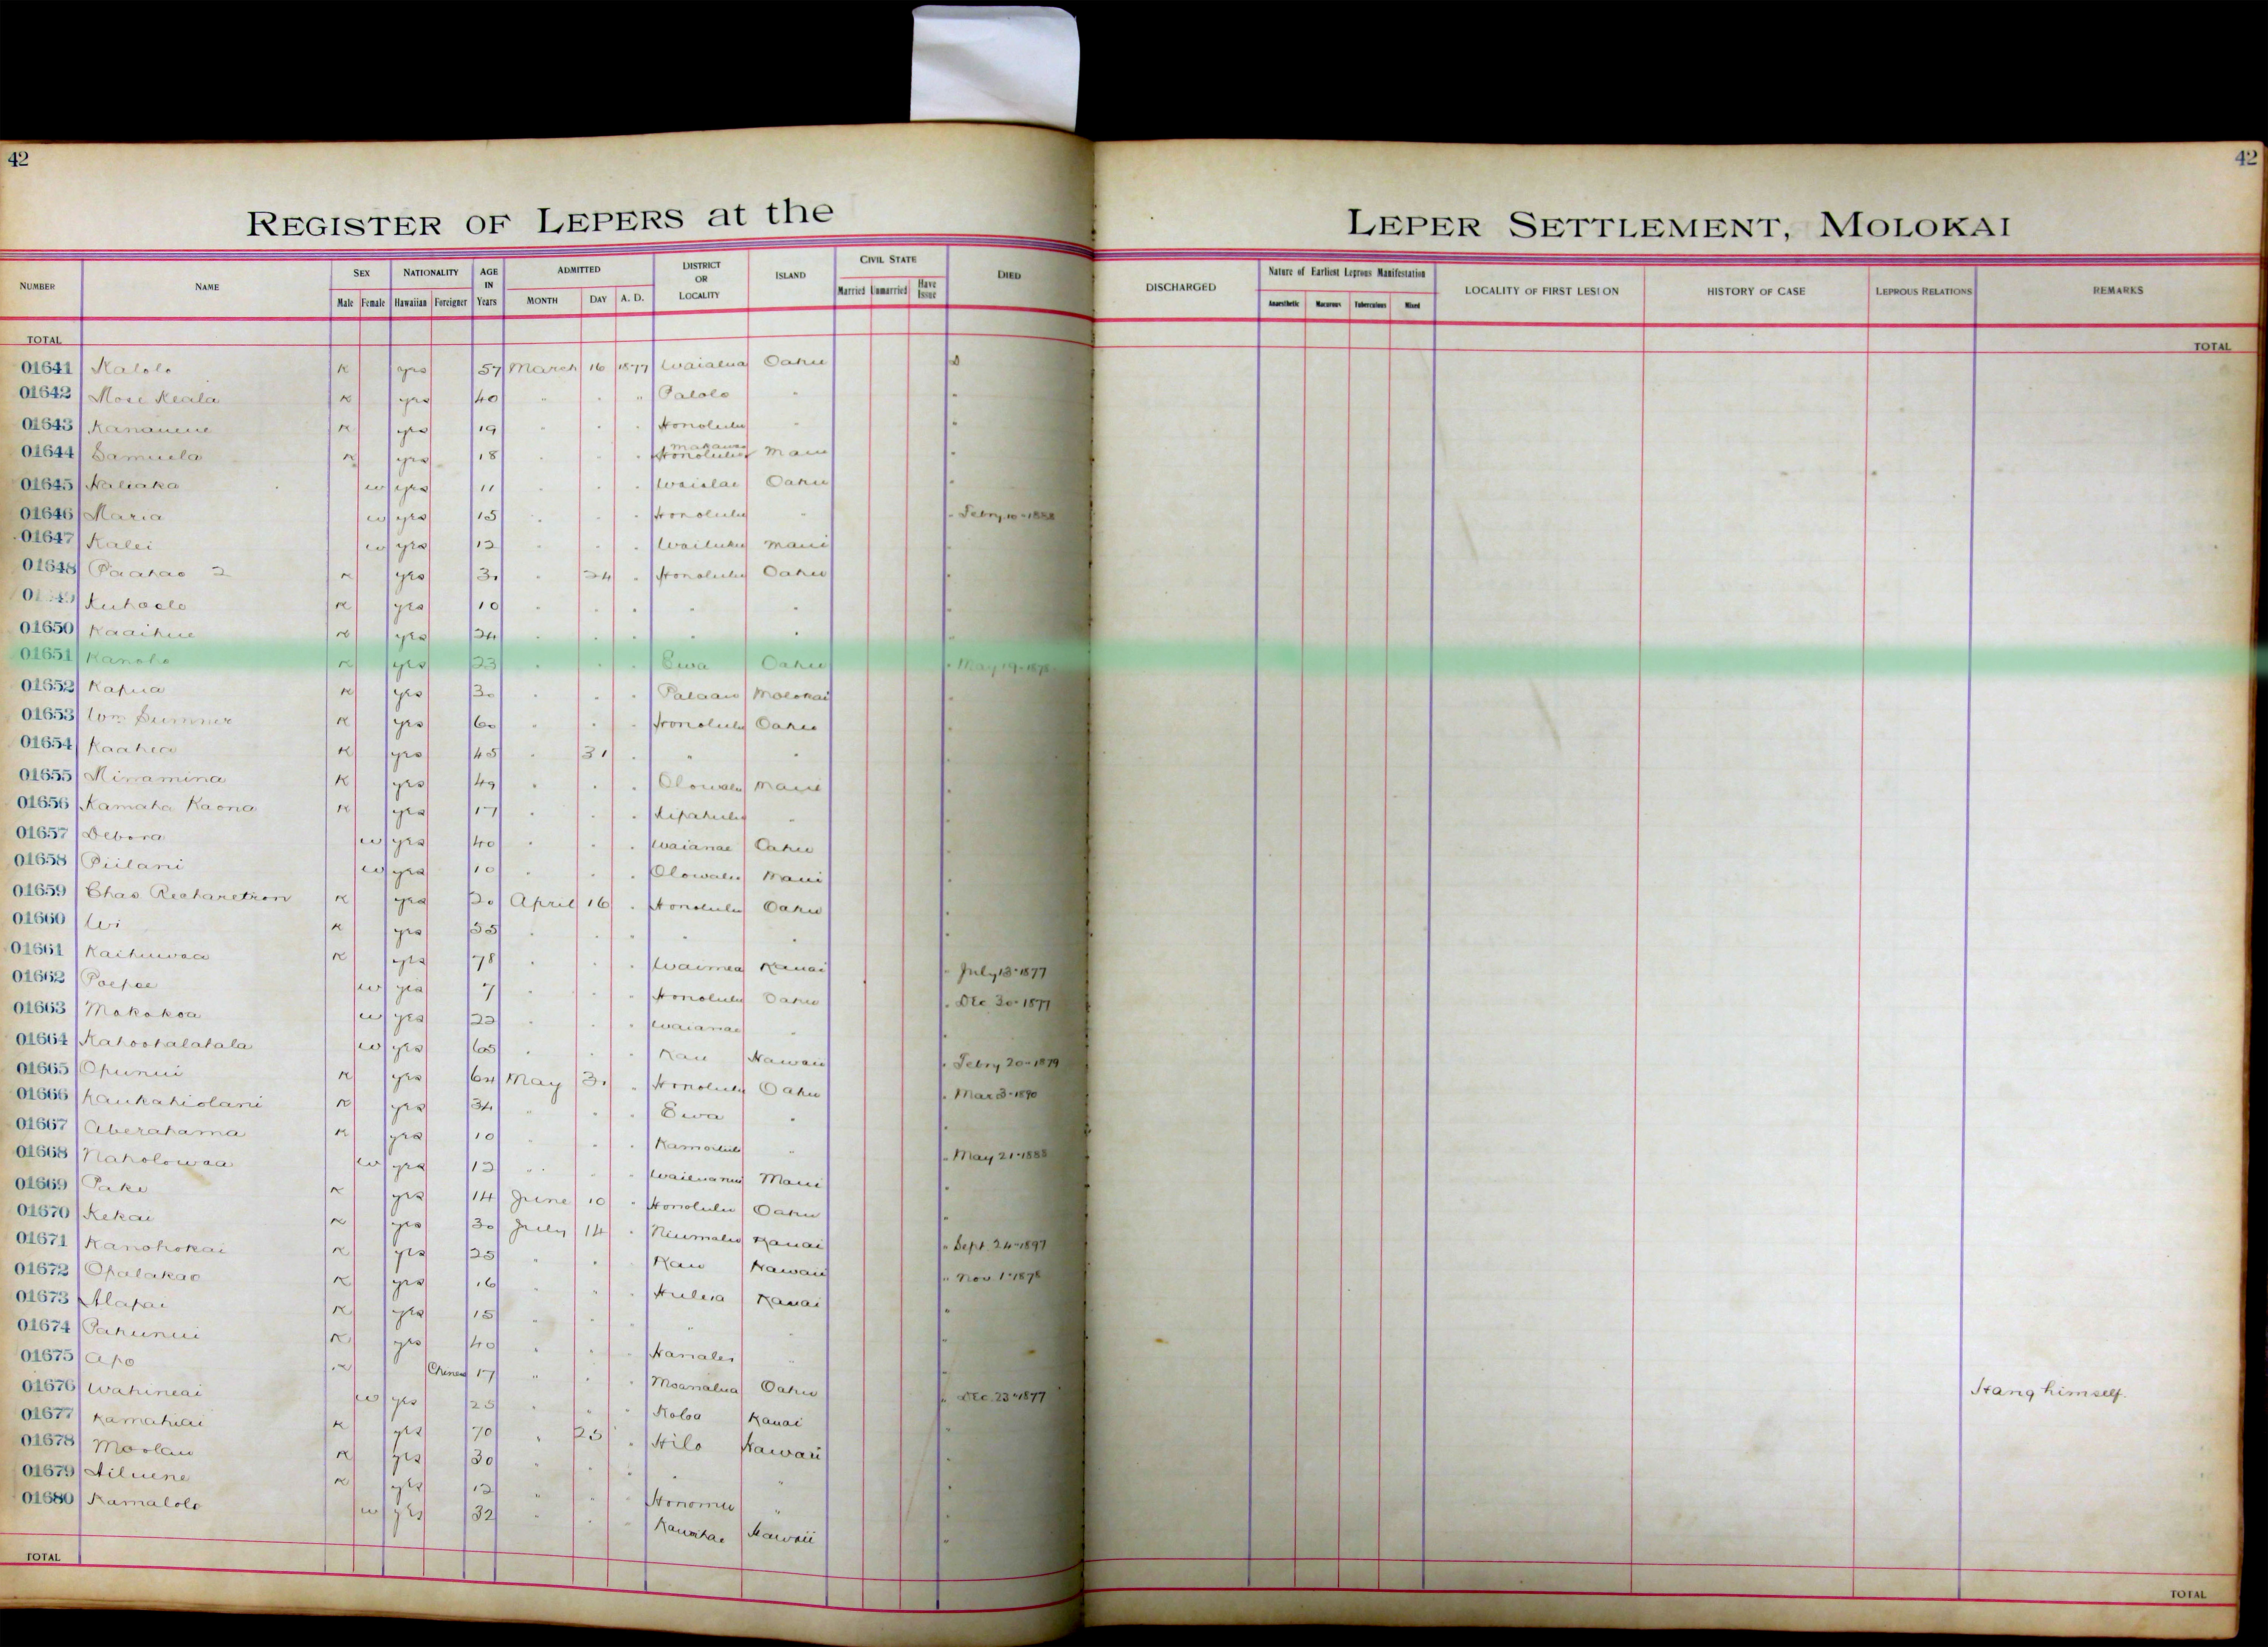 42
42
REGISTER OF LEPERS at the LEPER SETTLEMENT, MOLOKAI
NUMBER NAME SEX Male Female NATIONALITY Hawaiian Foreigner AGE IN Years ADMITTED MONTH DAY A. D. DISTRICT OR LOCALITY ISLAND CIVIL STATE Married Unmarried Have Issue DIED DISCHARGED Nature of Earliest Leprous Manifestation Anaesthetic Macurous Tuberculous Mixed LOCALITY OF FIRST LESION HISTORY OF CASE LEPROUS RELATIONS REMARKS
TOTAL TOTAL
01641 Kalolo K yes 57 March 16 1877 Waialua Oahu D
01642 Mose Keala K yes 40 " " " Palolo " "
01643 K yes 19 " " " Honolulu " "
01644 Samuela K yes 18 " " " Makawao Honolulu Maui "
01645 Naliaka w yes 11 " " " Waialae Oahu "
01646 Maria w yes 15 " " " Honolulu " " Febry 10-1888
01647 Kalei w yes 12 " " " Wailuku Maui "
01648 Paahao 2 K yes 30 " 24 " Honolulu Oahu "
Kuhaelo K yes 10 " " " " " "
01650 Kaaihue K yes 24 " " " " " "
01651 Kanoho K yes 23 " " " Ewa Oahu " May 19-1878
01652 Kapua K yes 30 " " " Palaau Molokai "
01653 Wm Sumner K yes 60 " " " Honolulu Oahu "
01654 Kaahea K yes 45 " 31 " " " "
01655 Minamina K yes 49 " " " Olowalu Maui "
01656 Kamaha Kaona K yes 17 " " " Kipahulu " "
01657 Debora w yes 40 " " " Waianae Oahu "
01658 Piilani w yes 10 " " " Olowalu Maui "
01659 Chas K yes 20 April 16 " Honolulu Oahu "
01660 Wi K yes 35 " " " " " "
01661 Kaihuwaa K yes 78 " " " Waimea Kauai " July 13-1877
01662 Poepoe w yes 7 " " " Honolulu Oahu " Dec 30-1877
01663 Makakoa w yes 22 " " " Waianae " "
01664 Kahoohalahala w yes 65 " " " Kau Hawaii " Febry 20-1879
01665 Opunui K yes 64 May 31 " Honolulu Oahu " Mar 3-1890
01666 Kaukahiolani K yes 34 " " " Ewa " "
01667 Aberahama K yes 10 " " " Kamoiliili " " May 21-1888
01668 Naholowaa w yes 12 " " " Wailuanui Maui "
01669 Pake K yes 14 June 10 " Honolulu Oahu "
01670 Kekai K yes 30 July 14 " Niumalu Kauai " Sept. 24-1897
01671 Kanohokai K yes 25 " " " Kau Hawaii " Nov 1-1878
01672 Opalakao K yes 16 " " " Huleia Kauai "
01673 Alapai K yes 15 " " " " " "
01674 Pahunui K yes 40 " " " Hanalei " "
01675 Apo K Chinese 17 " " " Moanalua Oahu " Dec. 23-1877 Hang himself.
01676 Wahineai w yes 25 " " " Koloa Kauai "
01677 Kamahiai K yes 70 " 25 " Hilo Hawaii "
01678 Moolau K yes 30 " " " " " "
01679 K yes 12 " " " Honomu " "
01680 Kamalolo w yes 32 " " " Kawaihae Hawaii "
TOTAL TOTAL